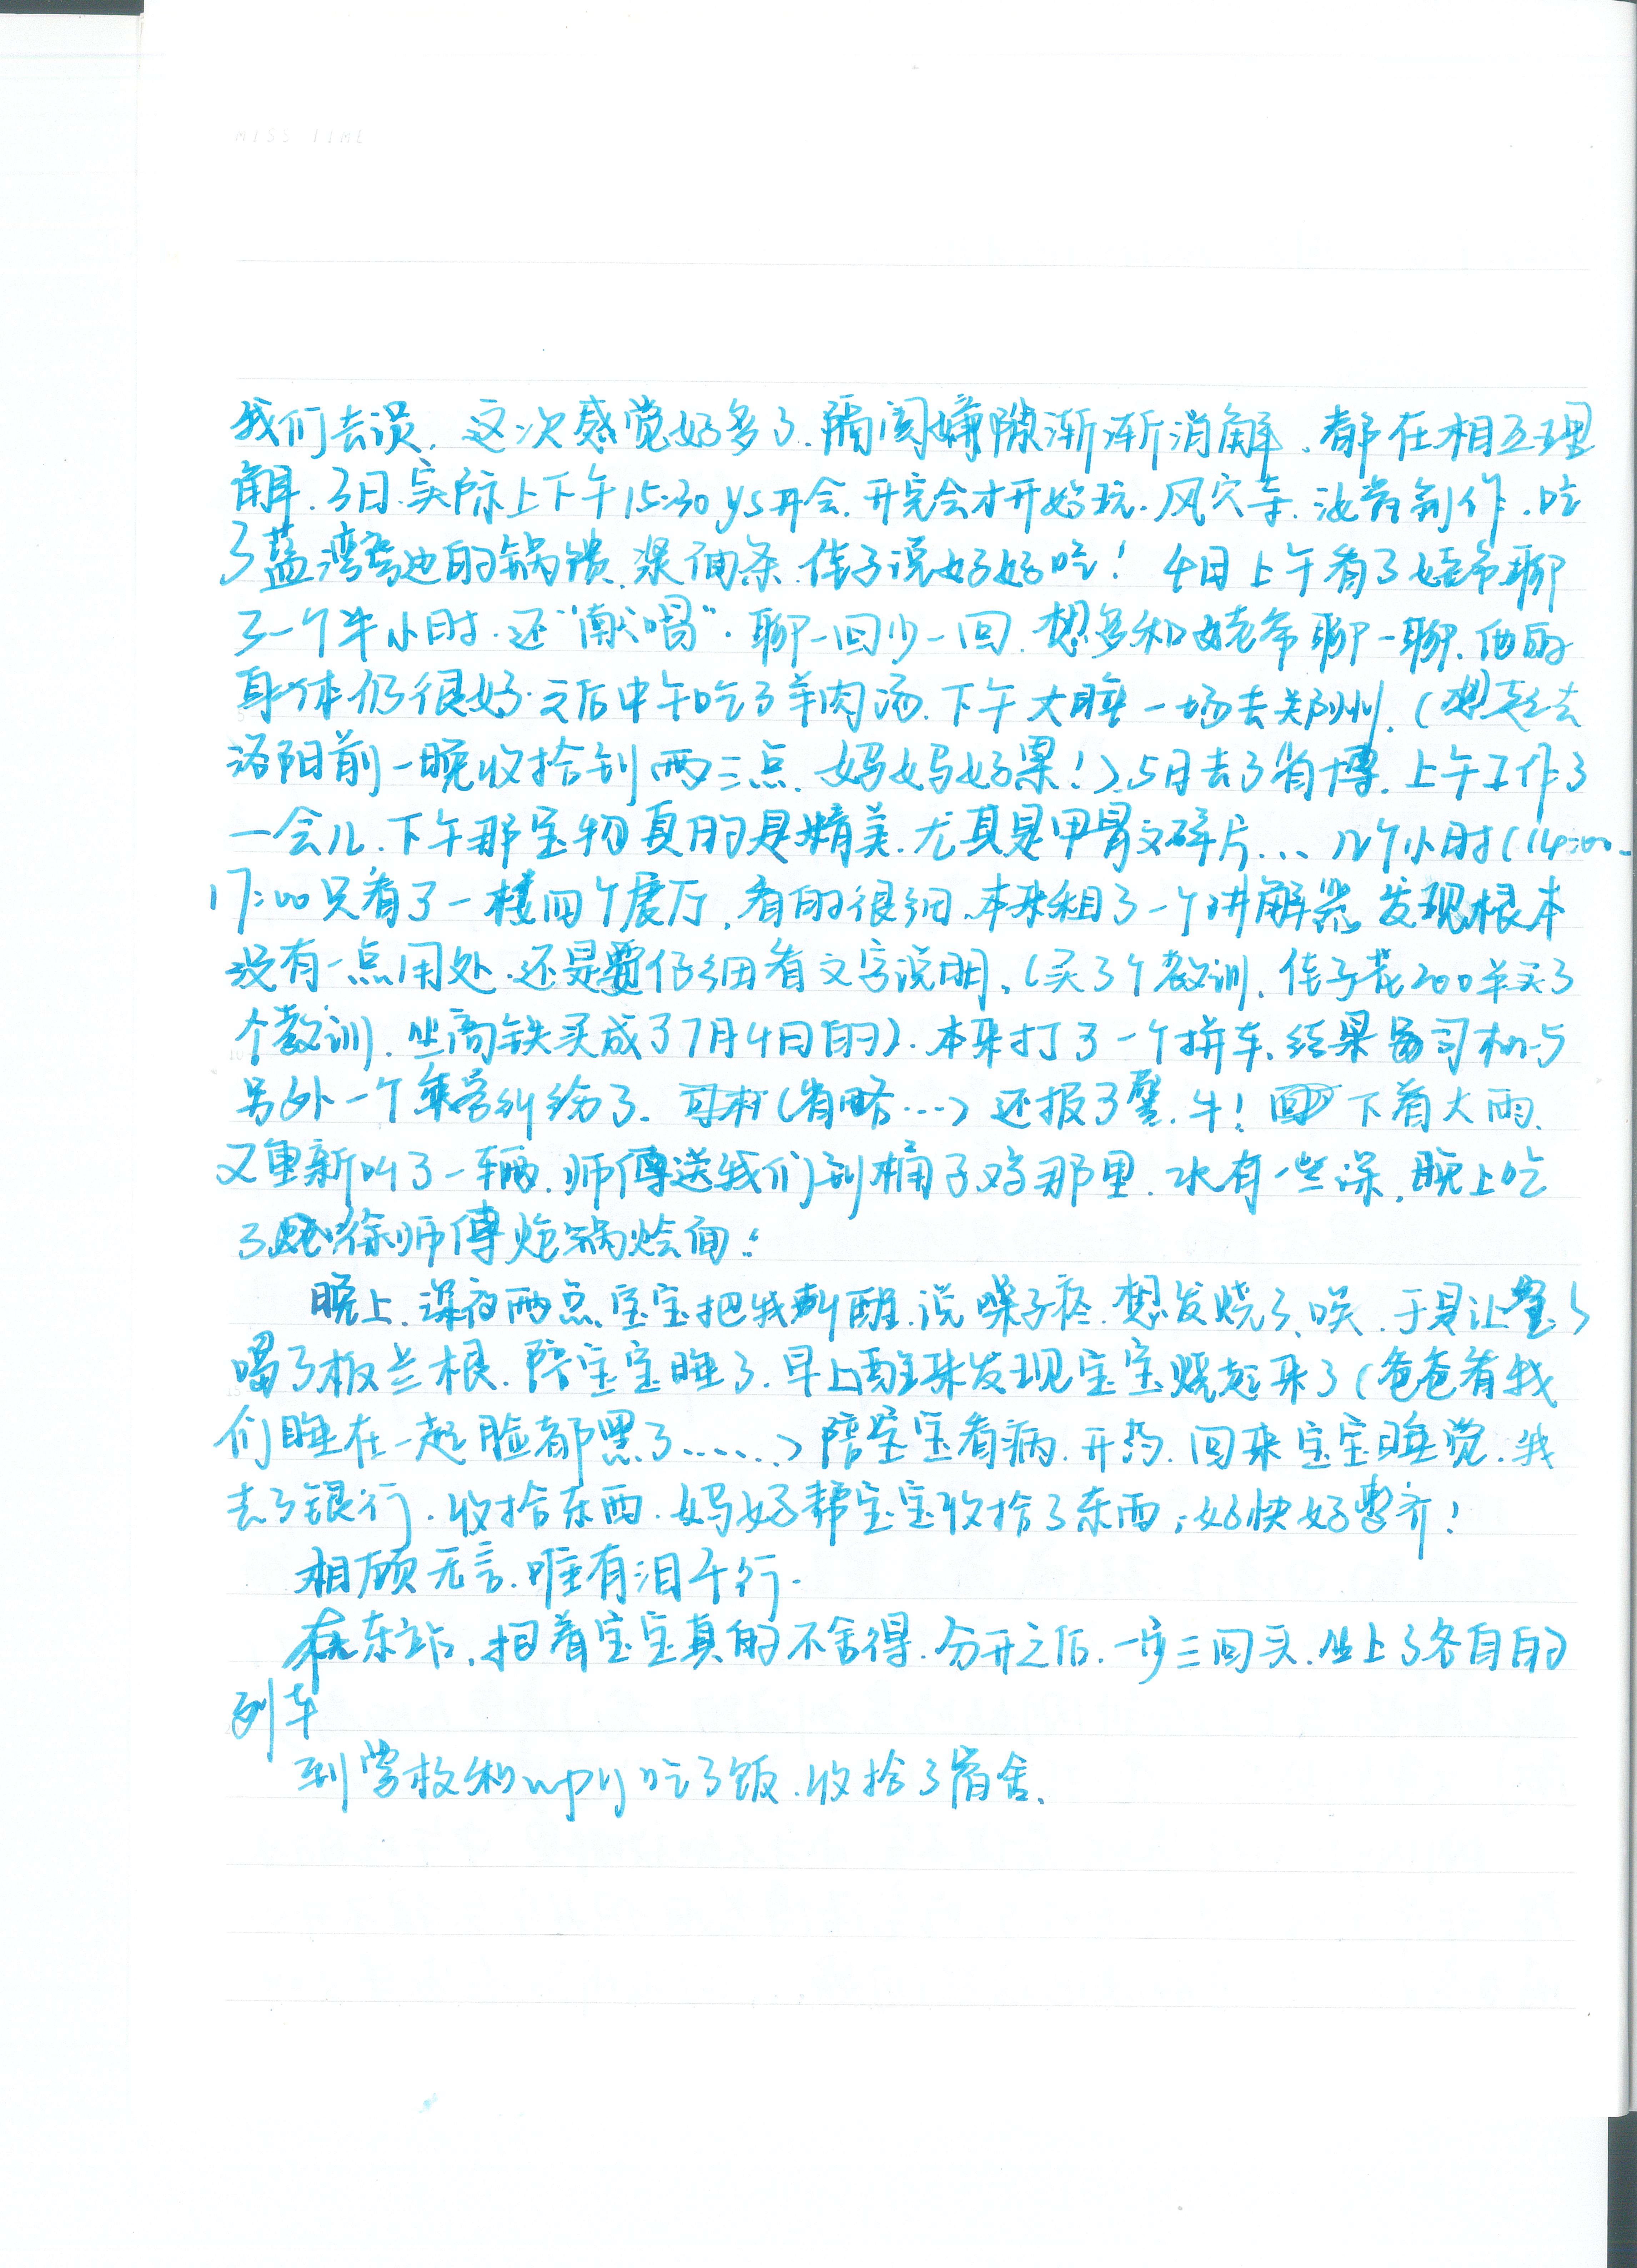 MISS TIME
我们去谈,这次感觉好多了.隔阂嫌隙渐渐消解,都在相互理
解.3日.实际上下午15:30 ys开会.开完会才开始玩.风穴寺.汝瓷制作.吃
了蓝湾旁边的锅馈.浆面条.佳子说好好吃!4日上午看了姥爷聊
了一个半小时.还“献唱”.聊一回少一回.想多和姥爷聊一聊.他的
身体仍很好.之后中午吃了羊肉汤.下午大睡一场去郑州.(想起去
洛阳前一晚收拾到两三点.妈妈好累!).5日去了省博.上午工作了
一会儿.下午那宝物真的是精美.尤其是甲骨文碎片...几个小时(14:00-
17:00只看了一楼四个展厅,看的很细.本来租了一个讲解器发现根本
没有一点用处.还是要仔细看文字说明.(买了个教训.佳子花200羊买了
个教训.坐高铁买成了7月4日的).本来打了一个拼车.结果司机与
另外一个乘客纠纷了.(省略...)还报了警.牛!下着大雨.
又重新叫了一辆.师傅送我们到桶子鸡那里.水有一些深.晚上吃
了徐师傅炝锅烩面.
晚上.深夜两点宝宝把我叫醒.说嗓子疼.想发烧了.唉.于是让宝宝
喝了板兰根.陪宝宝睡了.早上醒来发现宝宝烧起来了(爸爸看我
们睡在一起脸都黑了......)陪宝宝看病.开药.回来宝宝睡觉.我
去了银行.收拾东西.妈妈帮宝宝收拾了东西;好快好整齐!
相顾无言.唯有泪千行.
在东站,抱着宝宝真的不舍得.分开之后.一步三回头.坐上了各自的
列车
到学校和npy吃了饭.收拾了宿舍.